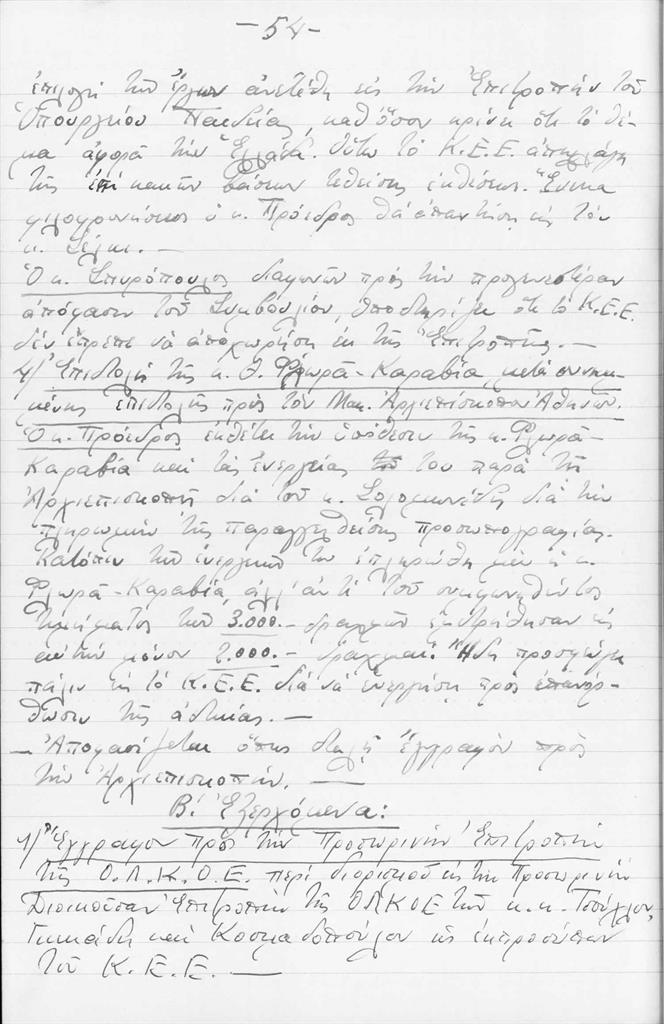 -54-
ἐπιλογὴ τῶν ἔργων ἀνετέθη εἰς τὴν Ἐπιτροπὴν τοῦ
Ὑπουργείου Παιδείας, καθ' ὅσον κρίνει ὅτι τὸ θέ-
μα ἀφορᾶ τὴν Ἑλλάδα. Οὕτω τὸ Κ.Ε.Ε. ἀπηλλάγη
τῆς ἐπὶ κακῶν βάσεων τεθείσης ἐκθέσεως. Ἕνεκα
φιλοφρονήσεως ὁ κ. Πρόεδρος θὰ ἀπαντήσῃ εἰς τὸν
κ.
Ὁ κ. Σπυρόπουλος διαφωνῶν πρὸς τὴν προγενεστέραν
ἀπόφασιν τοῦ Συμβουλίου, ὑποστηρίζει ὅτι τὸ Κ.Ε.Ε.
δὲν ἔπρεπε νὰ ἀποχωρήσῃ ἐκ τῆς Ἐπιτροπῆς.-
4)/ Ἐπιστολὴ τῆς κ. Θ. Φλωρᾶ-Καραβία, μετὰ συνημ-
μένης ἐπιστολῆς πρὸς τὸν Μακ. Ἀρχιεπίσκοπον Ἀθηνῶν.
Ὁ κ. Πρόεδρος ἐκθέτει τὴν ὑπόθεσιν τῆς κ. Φλωρᾶ-
Καραβία καὶ τὰς ἐνεργείας του παρὰ τῇ
Ἀρχιεπισκοπῇ διὰ τοῦ κ. Σολομωνίδη διὰ τὴν
πληρωμὴν τῆς παραγγελθείσης προσωπογραφίας.
Κατόπιν τῶν ἐνεργειῶν του ἐπληρώθη μὲν ἡ κ.
Φλωρᾶ-Καραβία, ἀλλ' ἀντὶ τοῦ συμφωνηθέντος
τιμήματος τῶν 3.000.- δραχμῶν ἐμετρήθησαν εἰς
αὐτὴν μόνον 2.000.- δραχμαί. Ἤδη προσφεύγει
πάλιν εἰς τὸ Κ.Ε.Ε. διὰ νὰ ἐνεργήσῃ πρὸς ἐπανόρ-
θωσιν τῆς ἀδικίας.-
- Ἀποφασίζεται ὅπως σταλῇ ἔγγραφον πρὸς
τὴν Ἀρχιεπισκοπήν.-
Β! Ἐξερχόμενα:
1)/ Ἔγγραφον πρὸς τὴν Προσωρινὴν Ἐπιτροπὴν
τῆς Ο.Λ.Κ.Ο.Ε. περὶ διορισμοῦ εἰς τὴν Προσωρινὴν
Διοικοῦσαν Ἐπιτροπὴν τῆς ΟΛΚΟΕ τῶν κ.κ.
καὶ Κοσμαδοπούλου ὡς ἐκπροσώπων
τοῦ Κ.Ε.Ε.-